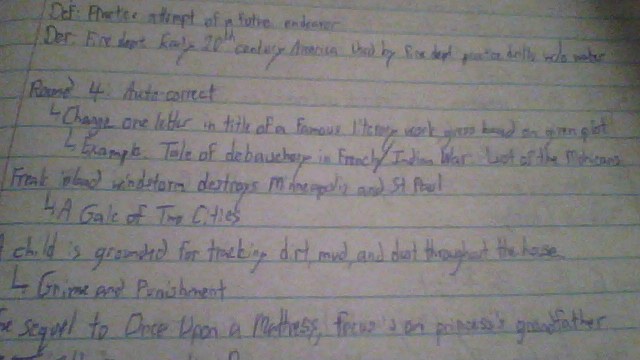 Def: Practice attempt of a future endeavor
Def: Fire dept Early 20th century America Used by fire dept practice drills w/o water
Round 4: Auto-correct
↳ Change one letter in title of a famous literary work guess based on given plot
↳ Example. Tale of debauchery in French/Indian War Lust of the Mohicans
Freak inland windstorm destroys Minneapolis and St Paul
↳ A Gale of Two Cities
child is grounded for tracking dirt, mud, and dust throughout the house
↳ Grime and Punishment
sequel to Once Upon a Mattress, focus is on princess's grandfather